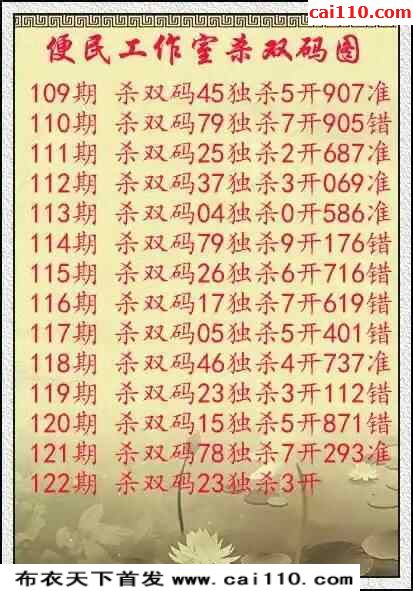 cai110.com
便民工作室杀双码图
109期 杀双码45独杀5开907准
110期 杀双码79独杀7开905错
111期 杀双码25独杀2开687准
112期 杀双码37独杀3开069准
113期 杀双码04独杀0开586准
114期 杀双码79独杀9开176错
115期 杀双码26独杀6开716错
116期 杀双码17独杀7开619错
117期 杀双码05独杀5开401错
118期 杀双码46独杀4开737准
119期 杀双码23独杀3开112错
120期 杀双码15独杀5开871错
121期 杀双码78独杀7开293准
122期 杀双码23独杀3开
布衣天下首发 www.cai110.com